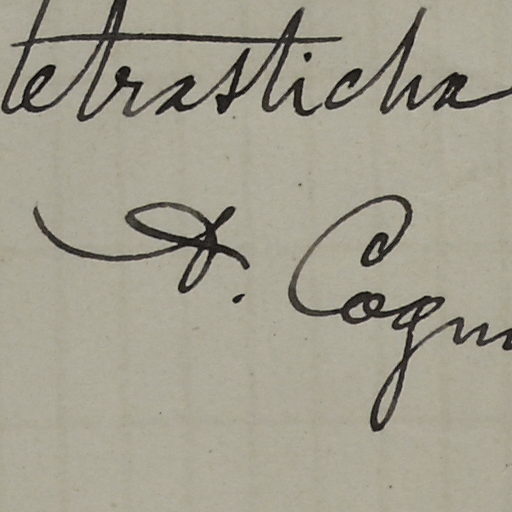 tetrasticha
A. Cogn